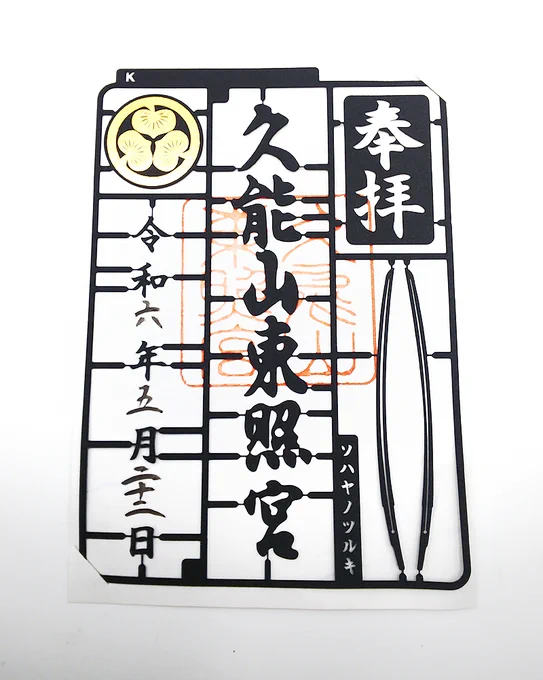 K
奉拝
ソハヤノツルキ
久能山東照宮
令和六年五月二十二日